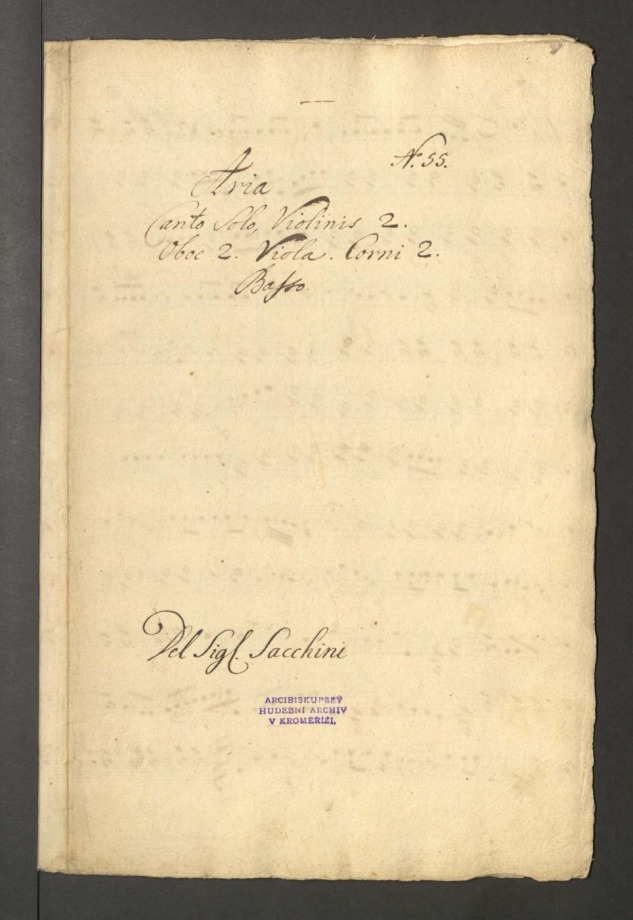 No. 55.
Aria
Canto Solo, Violinis 2.
Oboe 2. Viola. Corni 2.
Basso.
Del Sigl. Sacchini
ARCIBISKUPSKÝ
HUDEBNÍ ARCHIV
V KROMĚŘÍŽI.